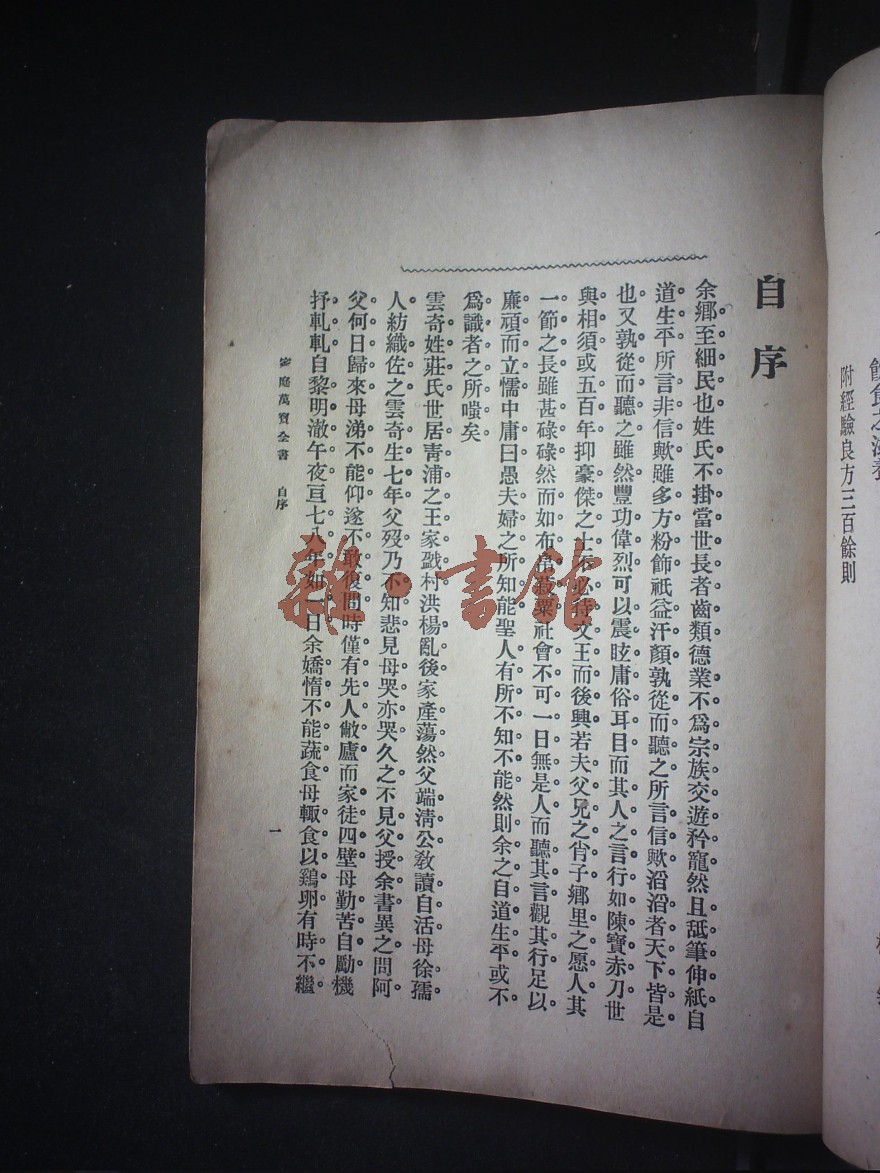 飲食之滋養
附經驗良方三百餘則
自序
余鄉至細民也姓氏不掛當世長者齒類德業不爲宗族交遊矜寵然且舐筆伸紙自
道生平所言非信歟雖多方粉飾祇益汗顏孰從而聽之所言信歟滔滔者天下皆是
也又孰從而聽之雖然豐功偉烈可以震眩庸俗耳目而其人之言行如陳寶赤刀世
與相須或五百年抑豪傑之士不必待文王而後興若夫父兄之肖子鄉里之愿人其
一節之長雖甚碌碌然而如布帛菽粟社會不可一日無是人而聽其言觀其行足以
廉頑而立懦中庸曰愚夫婦之所知能聖人有所不知不能然則余之自道生平或不
爲識者之所嗤矣
雲奇姓莊氏世居青浦之王家戤村洪楊亂後家產蕩然父端清公敎讀自活母徐孺
人紡織佐之雲奇生七年父歿乃不知悲見母哭亦哭久之不見父授余書異之問阿
父何日歸來母涕不能仰遂不敢復問時僅有先人敝廬而家徒四壁母勤苦自勵機
抒軋軋自黎明澈午夜亘七八年如一日余嬌惰不能蔬食母輙食以鷄卵有時不繼
家庭萬寶全書 自序
一
雜·書館